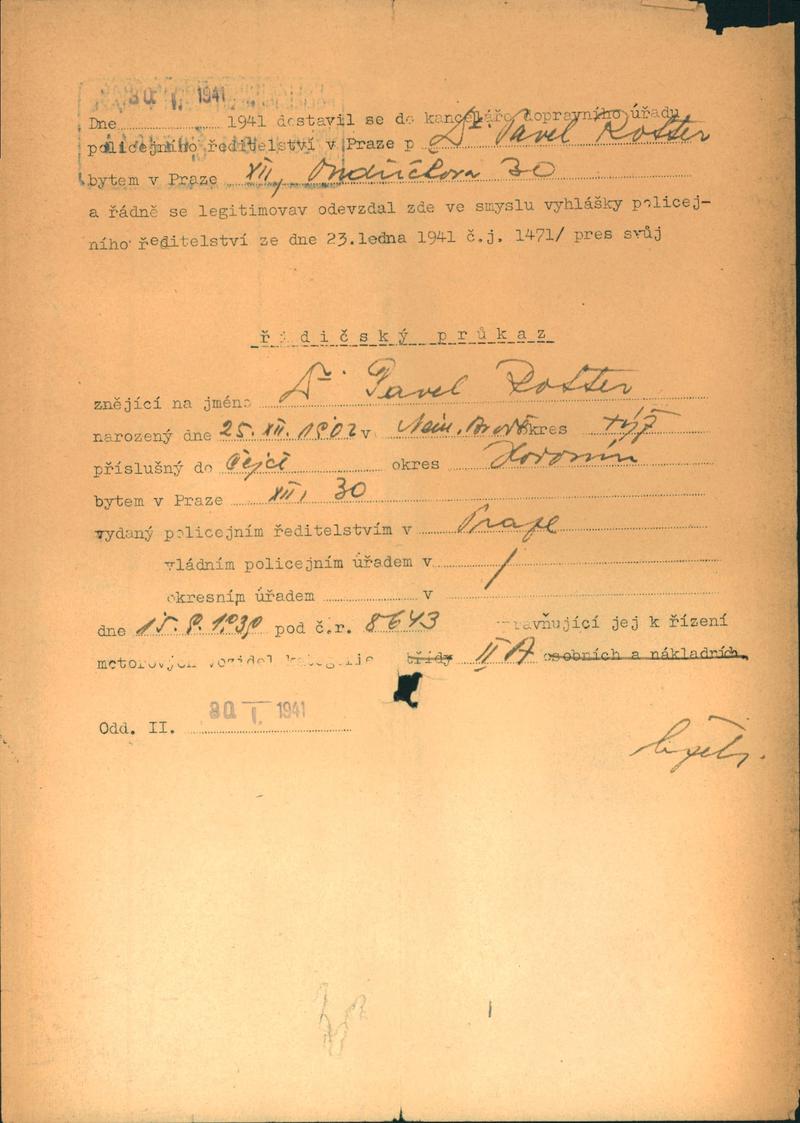 30 I. 1941
Dne 1941 dostavil se do kanceláře dopravního úřadu
policejního ředitelství v Praze p Dr Pavel Rotter
bytem v Praze XII, Ondříčkova 30
a řádně se legitimovav odevzdal zde ve smyslu vyhlášky policej-
ního ředitelství ze dne 23.ledna 1941 č.j. 1471/ pres svůj
řidičský průkaz
znějící na jméno Dr Pavel Rotter
narozený dne 25. XII. 1902 v Něm. Brod okres týž
příslušný do Čejč okres Hodonín
bytem v Praze XII, 30
vydaný policejním ředitelstvím v Praze
vládním policejním úřadem v /
okresním úřadem v
dne 15. 8. 1930 pod č.r. 8643 opravňující jej k řízení
motorových vozidel kategorie třídy II A osobních a nákladních.
Odd. II. 30 I. 1941